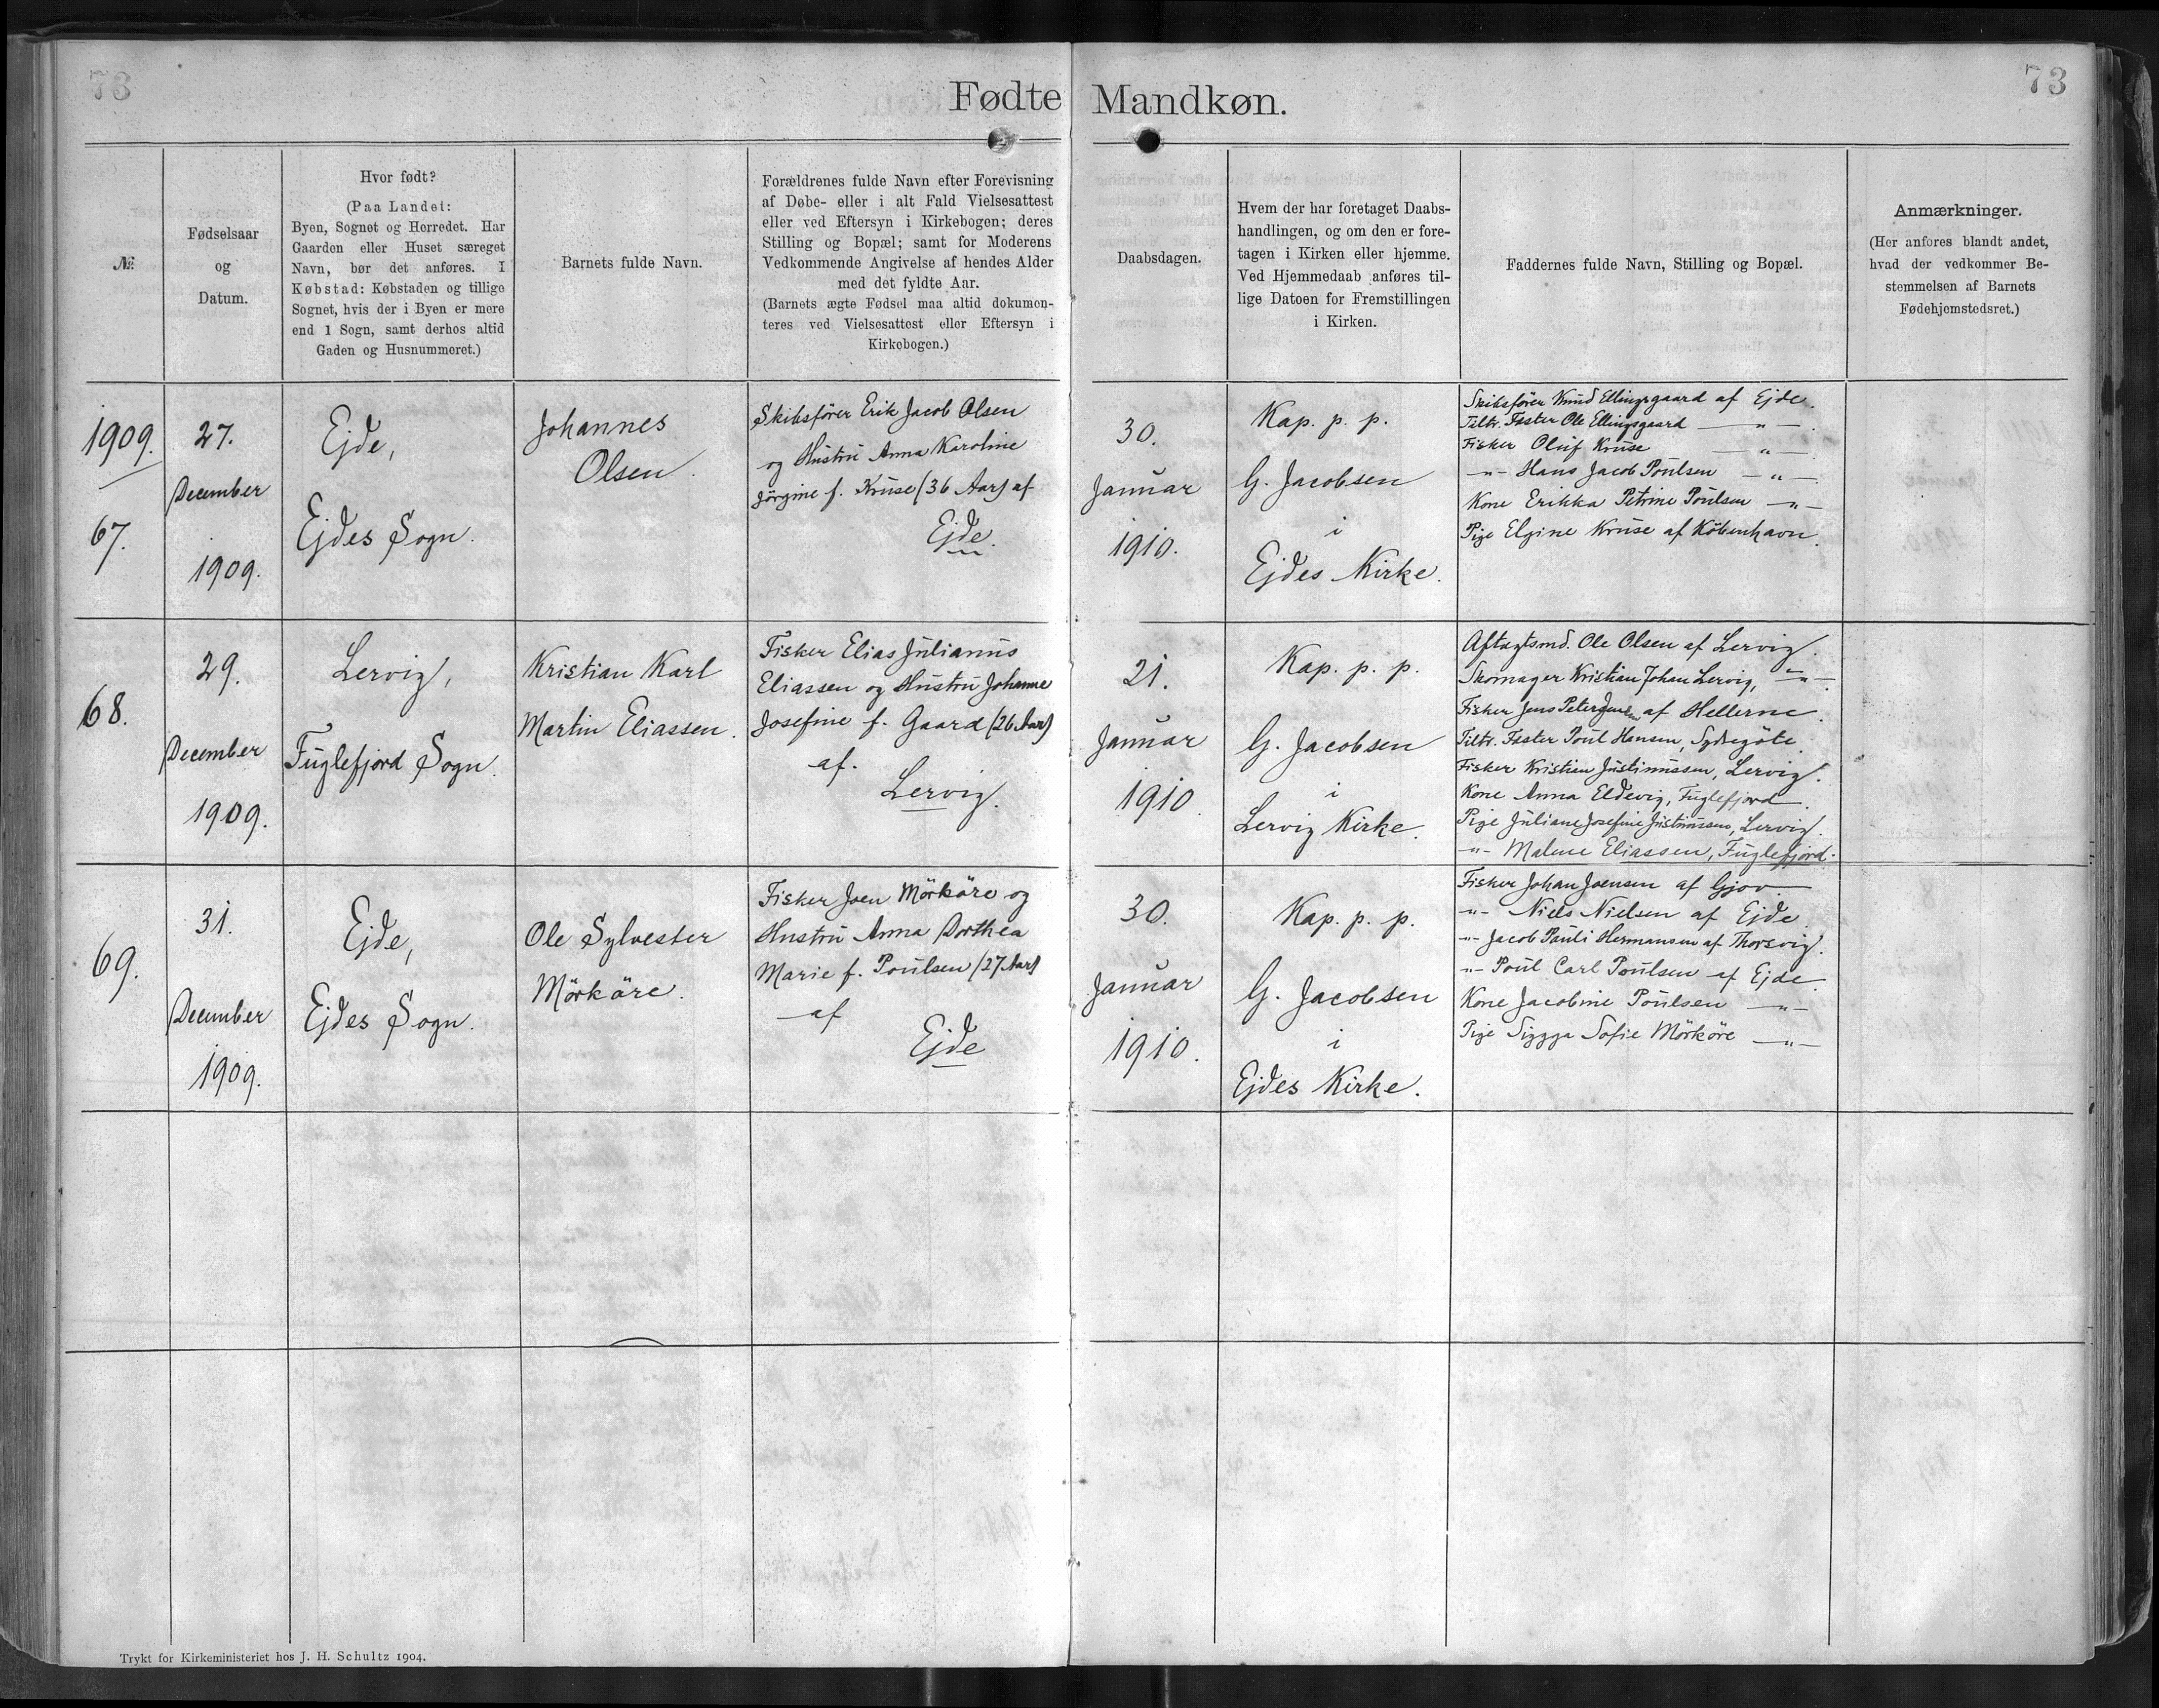 73
Fødte Mandkøn.
73
№
Fødselsaar
og
Datum.
Hvor født?
(Paa Landet:
Byen, Sognet og Herredet. Har
Gaarden eller Huset særeget
Navn, bør det anføres. I
Købstad: Købstaden og tillige
Sognet, hvis der i Byen er mere
end 1 Sogn, samt derhos altid
Gaden og Husnummeret.)
Barnets fulde Navn.
Forældrenes fulde Navn efter Forevisning
af Døbe- eller i alt Fald Vielsesattest
eller ved Eftersyn i Kirkebogen; deres
Stilling og Bopæl; samt for Moderens
Vedkommende Angivelse af hendes Alder
med det fyldte Aar.
(Barnets ægte Fødsel maa altid dokumen-
teres ved Vielsesattest eller Eftersyn i
Kirkebogen.)
Daabsdagen.
Hvem der har foretaget Daabs-
handlingen, og om den er fore-
tagen i Kirken eller hjemme.
Ved Hjemmedaab anføres til-
lige Datoen for Fremstillingen
i Kirken.
Faddernes fulde Navn, Stilling og Bopæl.
Anmærkninger.
(Her anføres blandt andet,
hvad der vedkommer Be-
stemmelsen af Barnets
Fødehjemstedsret.)
1909.
67.
27.
December
1909.
Ejde,
Ejdes Sogn.
Johannes
Olsen.
Skibsfører Erik Jacob Olsen
og Hustru Anna Karoline
Jörgine f. Kruse (36 Aar) af
Ejde.
30.
Januar
1910.
Kap. p. p.
G. Jacobsen
i
Ejdes Kirke.
Skibsförer Knud Ellingsgaard af Ejde.
Tiltr. Fæster Ole Ellingsgaard —"—.
Fisker Oluf Kruse —"—.
—"— Hans Jacob Poulsen —"—.
Kone Erikka Petrine Poulsen —"—
Pige Elgine Kruse af Köbenhavn.
68.
29.
December
1909.
Lervig,
Fuglefjord Sogn.
Kristian Karl
Martin Eliassen.
Fisker Elias Julianus
Eliassen og Hustru Johanne
Josefine f. Gaard (26 Aar)
af.
Lervig.
21.
Januar
1910.
Kap. p. p.
G. Jacobsen
i
Lervig Kirke.
Aftægtsmd. Ole Olsen af Lervig.
Skomager Kristian Johan Lervig, —"—.
Fisker Jens Peter af Hellerne.
Tiltr. Fæster Poul Hansen, Sydregöte.
Fisker Kristian Justinussen, Lervig.
Kone Anna Eldevig, Fuglefjord.
Pige Juliane Josefine Justinussen, Lervig.
—"— Malene Eliassen, Fuglefjord.
69.
31.
December
1909.
Ejde,
Ejdes Sogn.
Ole Sylvester
Mörköre.
Fisker Joen Mörköre og
Hustru Anna Dorthea
Marie f. Poulsen (27 Aar)
af
Ejde
30.
Januar
1910.
Kap. p. p.
G. Jacobsen
i
Ejdes Kirke.
Fisker Johan Joensen af Gjov.
—"— Niels Nielsen af Ejde.
—"— Jacob Pauli Hermansen af Thorsvig.
—"— Poul Carl Poulsen af Ejde.
Kone Jacobine Poulsen —"—
Pige Sigga Sofie Mörköre —"—
Trykt for Kirkeministeriet hos J. H. Schultz 1904.